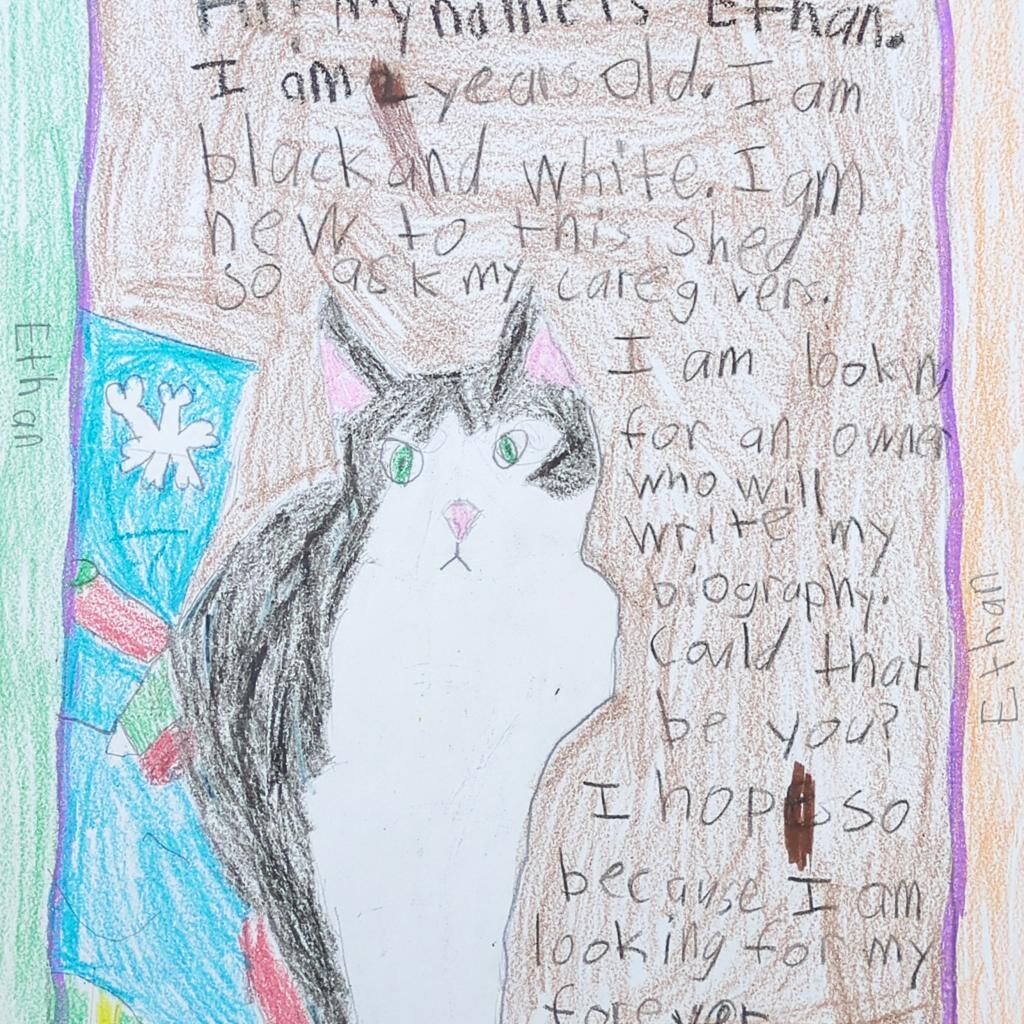 Hi! My name is Ethan.
I am 2 years old. I am
black and white. I am
new to this shed
so ask my caregivers.
I am lookin
for an owner
who will
write my
biography.
Could that
be you?
I hope so
because I am
looking for my
forever
Ethan
Ethan